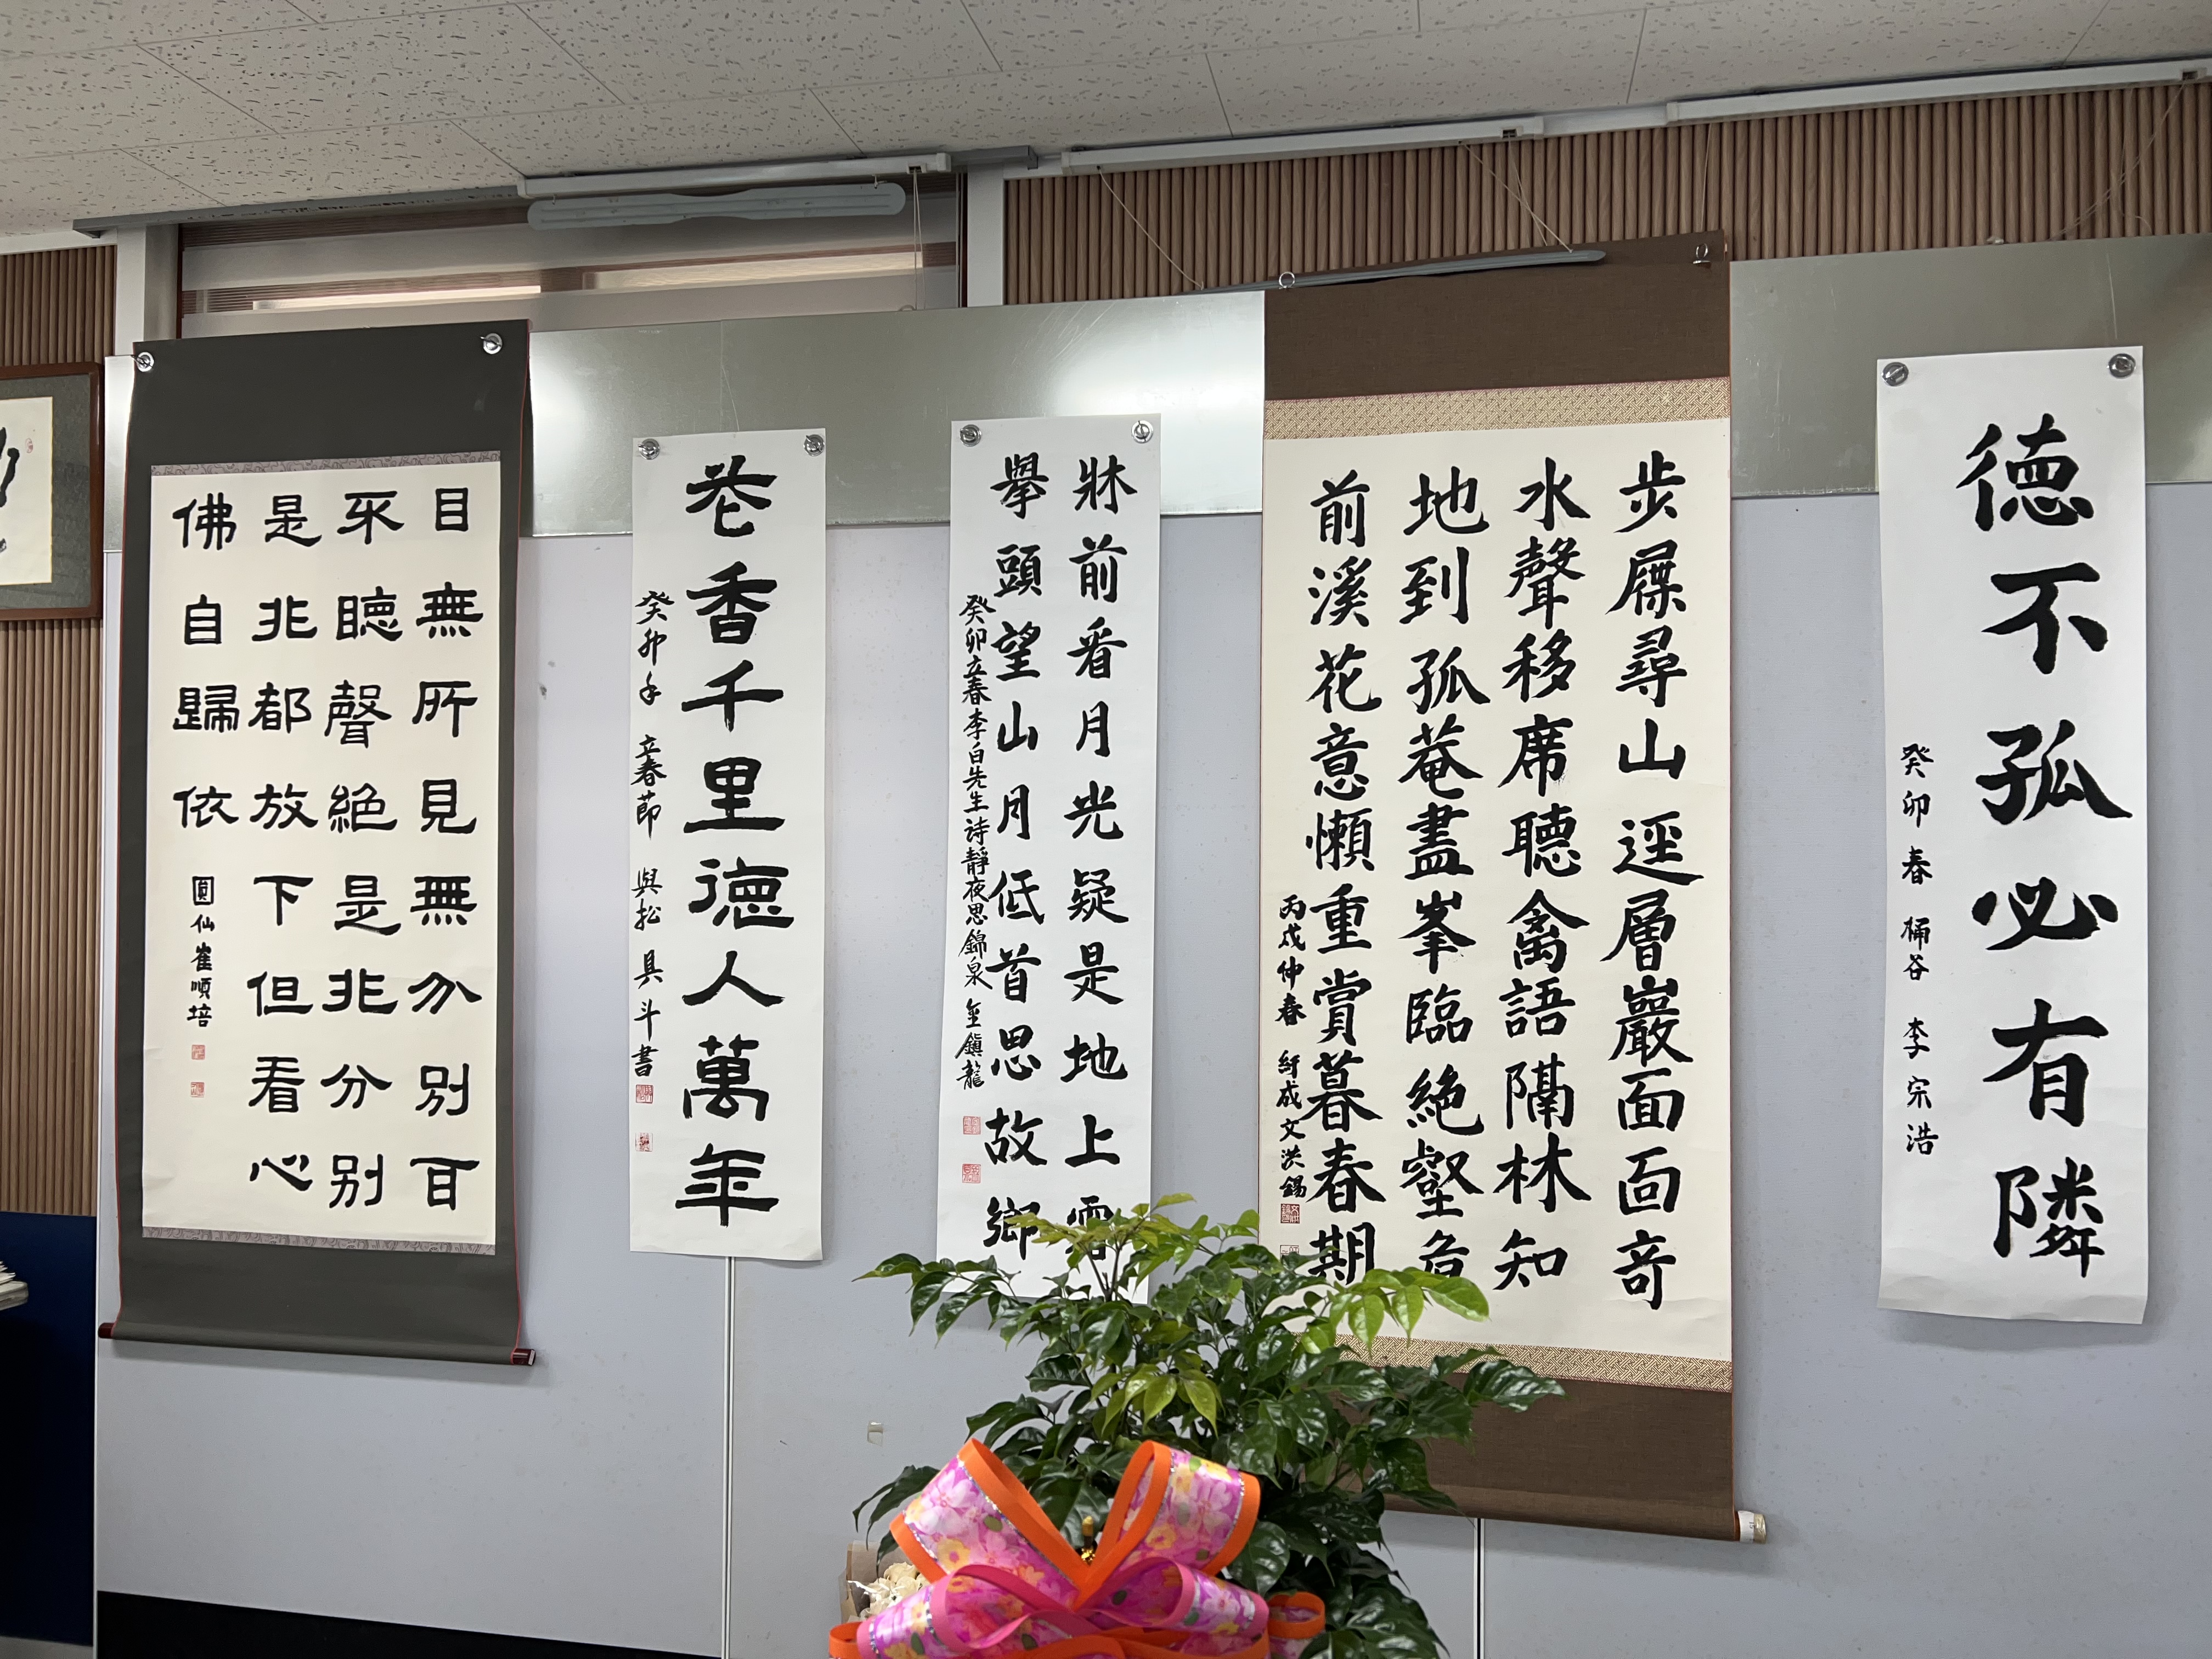 德不孤必有隣
癸卯春 桶谷 李宗浩
步屧尋山逕層巖面面奇
水聲移席聽禽語隔林知
地到孤菴盡峯臨絶壑危
前溪花意懶重賞暮春期
丙戌仲春 紆成 文洪錫
牀前看月光疑是地上霜
擧頭望山月低首思故鄉
癸卯立春李白先生诗靜夜思錦泉 金鎭龍
花香千里德人萬年
癸卯年 立春節 與松 具斗書
目無所見無分別百
不聽聲絶是非分别
是非都放下但看心
佛自歸依
圓仙崔順培